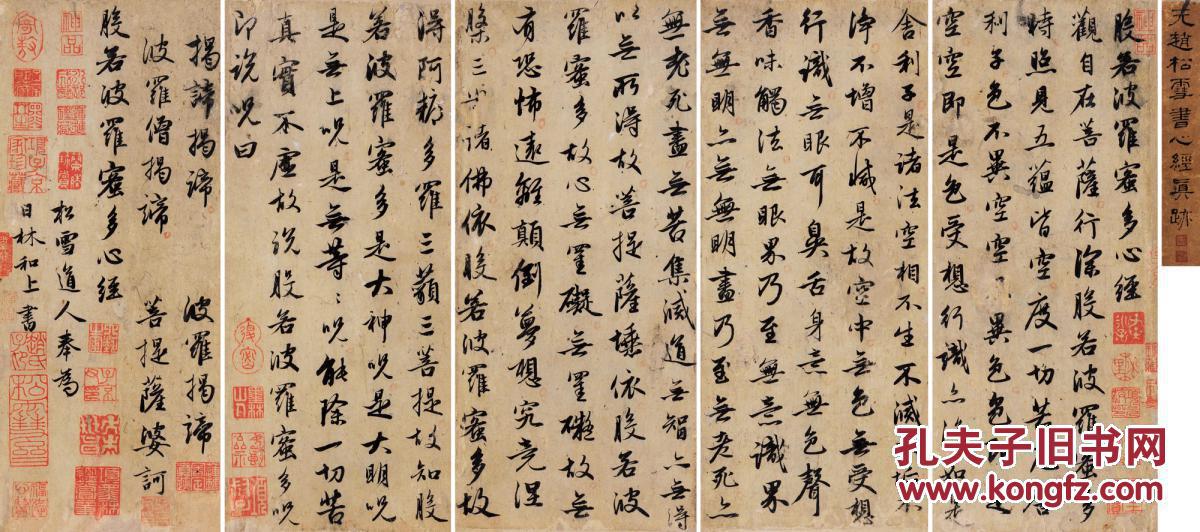 元趙松雪書心經真跡
般若波羅蜜多心經
觀自在菩薩行深般若波羅蜜多
時照見五蘊皆空度一切苦厄舍
利子色不異空空不異色色即是
空空即是色受想行識亦復如是
舍利子是諸法空相不生不滅不垢不
淨不增不減是故空中無色無受想
行識無眼耳鼻舌身意無色聲
香味觸法無眼界乃至無意識界
無無明亦無無明盡乃至無老死亦
無老死盡無苦集滅道無智亦無得
以無所得故菩提薩埵依般若波
羅蜜多故心無罣礙無罣礙故無
有恐怖遠離顛倒夢想究竟涅
槃三世諸佛依般若波羅蜜多故
得阿耨多羅三藐三菩提故知般
若波羅蜜多是大神呪是大明呪
是無上呪是無等〻呪能除一切苦
真實不虛故說般若波羅蜜多呪
即說呪曰
揭諦揭諦 波羅揭諦
波羅僧揭諦 菩提薩婆訶
般若波羅蜜多心經
松雪道人奉為
日林和上書
神品
孔夫子旧书网
www.kongfz.com